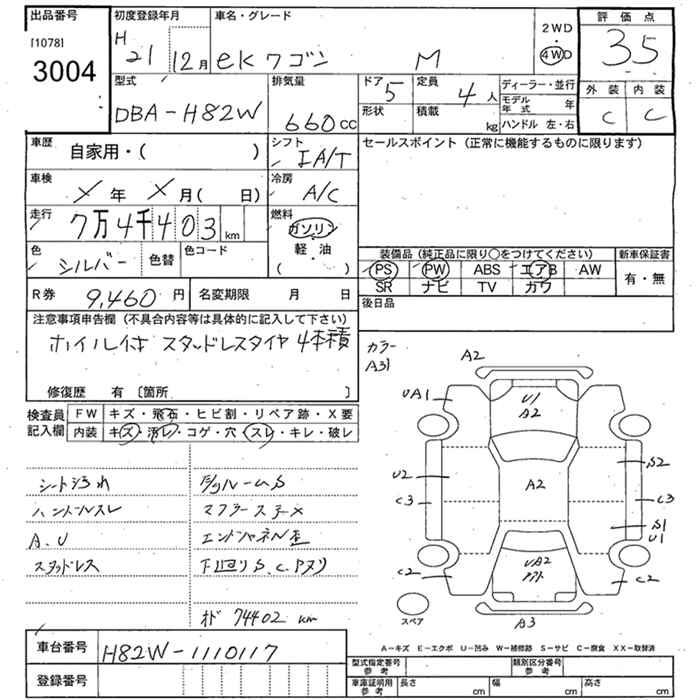 出品番号
[1078]
3004
初度登録年月
H 21 12月
車名・グレード
ekワゴン M
2WD
4WD
評価点
35
外装 内装
C C
型式
DBA-H82W
排気量
660cc
ドア 5
形状
定員 4人
積載 kg
ディーラー・並行
モデル年式 年
ハンドル 左・右
車歴
自家用・( )
シフト
IA/T
車検
X年 X月( 日)
冷房
A/C
走行
7万4千403km
燃料
ガソリン
軽・油
( )
色
シルバー
色替
色コード
R券 9,460円
名変期限 月 日
セールスポイント(正常に機能するものに限ります)
装備品(純正品に限り○をつけてください)
新車保証書
PS PW ABS エアB AW
SR ナビ TV カワ
有・無
後日品
注意事項申告欄(不具合内容等は具体的に記入して下さい)
ホイル付 スタッドレスタイヤ 4本積
修復歴 有〔箇所 〕
検査員記入欄
FW キズ・飛石・ヒビ割・リペア跡・X要
内装 キズ・汚レ・コゲ・穴・スレ・キレ・破レ
シート汚れ
ハンドルスレ
A、U
スタッドレス
マフラー
下廻りS、C、
74402 km
カラー
A31
A2
UA1
U1
A2
U2
A2
S2
C3
C3
S1
U1
C2
UA2
C2
A3
スペア
A-キズ E-エクボ U-凹み W-補修跡 S-サビ C-腐食 XX-取替済
車台番号
H82W-1110117
登録番号
型式指定番号 参考
類別区分番号 参考
車庫証明用 参考
長さ cm
幅 cm
高さ cm